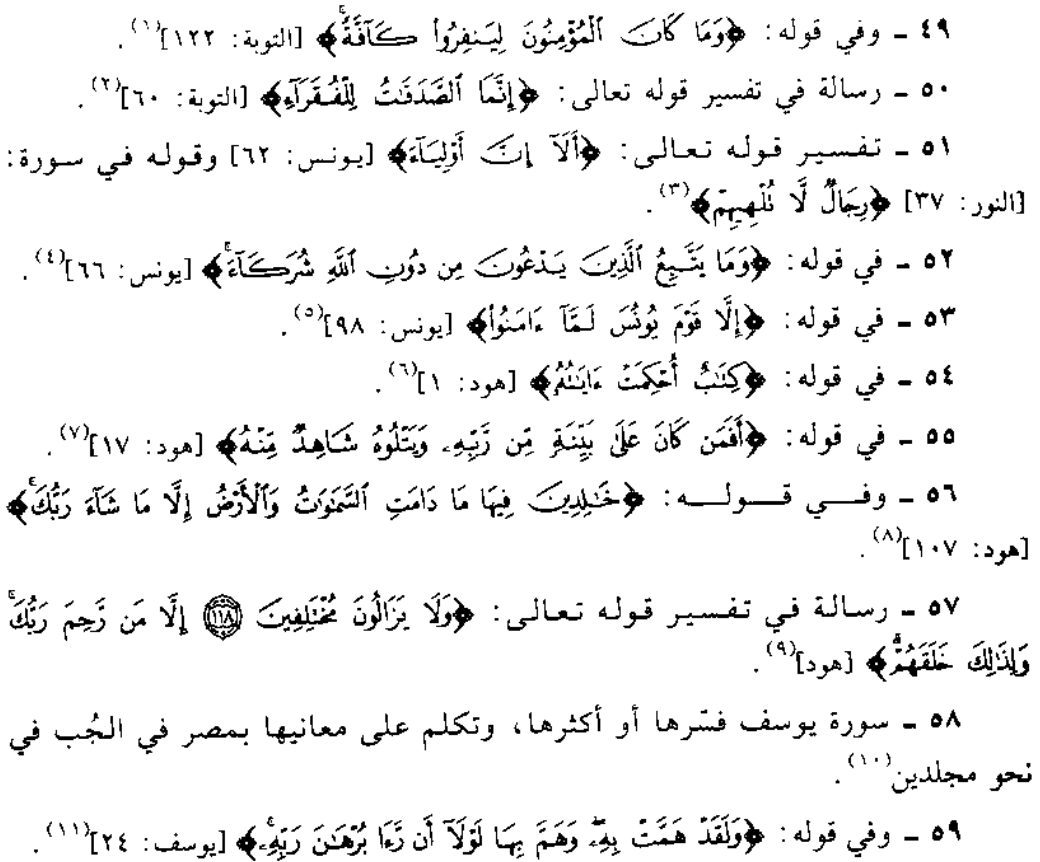 ٤٩ ـ وفي قوله: ﴿وَمَا كَانَ ٱلْمُؤْمِنُونَ لِيَنفِرُوا۟ كَآفَّةً ۚ﴾ [التوبة: ١٢٢]⁽¹⁾.
٥٠ ـ رسالة في تفسير قوله تعالى: ﴿إِنَّمَا ٱلصَّدَقَـٰتُ لِلْفُقَرَآءِ﴾ [التوبة: ٦٠]⁽٢⁾.
٥١ ـ تفسير قوله تعالى: ﴿أَلَآ إِنَّ أَوْلِيَآءَ﴾ [يونس: ٦٢] وقوله في سورة:
[النور: ٣٧] ﴿رِجَالٌ لَّا تُلْهِيهِمْ﴾⁽٣⁾.
٥٢ ـ في قوله: ﴿وَمَا يَتَّبِعُ ٱلَّذِينَ يَدْعُونَ مِن دُونِ ٱللَّهِ شُرَكَآءَ ۚ﴾ [يونس: ٦٦]⁽٤⁾.
٥٣ ـ في قوله: ﴿إِلَّا قَوْمَ يُونُسَ لَمَّآ ءَامَنُوا۟﴾ [يونس: ٩٨]⁽٥⁾.
٥٤ ـ في قوله: ﴿كِتَـٰبٌ أُحْكِمَتْ ءَايَـٰتُهُۥ﴾ [هود: ١]⁽٦⁾.
٥٥ ـ في قوله: ﴿أَفَمَن كَانَ عَلَىٰ بَيِّنَةٍ مِّن رَّبِّهِۦ وَيَتْلُوهُ شَاهِدٌ مِّنْهُ﴾ [هود: ١٧]⁽٧⁾.
٥٦ ـ وفي قوله: ﴿خَـٰلِدِينَ فِيهَا مَا دَامَتِ ٱلسَّمَـٰوَٰتُ وَٱلْأَرْضُ إِلَّا مَا شَآءَ رَبُّكَ ۚ﴾
[هود: ١٠٧]⁽٨⁾.
٥٧ ـ رسالة في تفسير قوله تعالى: ﴿وَلَا يَزَالُونَ مُخْتَلِفِينَ ﴿١١٨﴾ إِلَّا مَن رَّحِمَ رَبُّكَ ۚ
وَلِذَٰلِكَ خَلَقَهُمْ ۗ﴾ [هود]⁽٩⁾.
٥٨ ـ سورة يوسف فسّرها أو أكثرها، وتكلم على معانيها بمصر في الجُب في
نحو مجلدين⁽١٠⁾.
٥٩ ـ وفي قوله: ﴿وَلَقَدْ هَمَّتْ بِهِۦ ۖ وَهَمَّ بِهَا لَوْلَآ أَن رَّءَا بُرْهَـٰنَ رَبِّهِۦ ۚ﴾ [يوسف: ٢٤]⁽١١⁾.